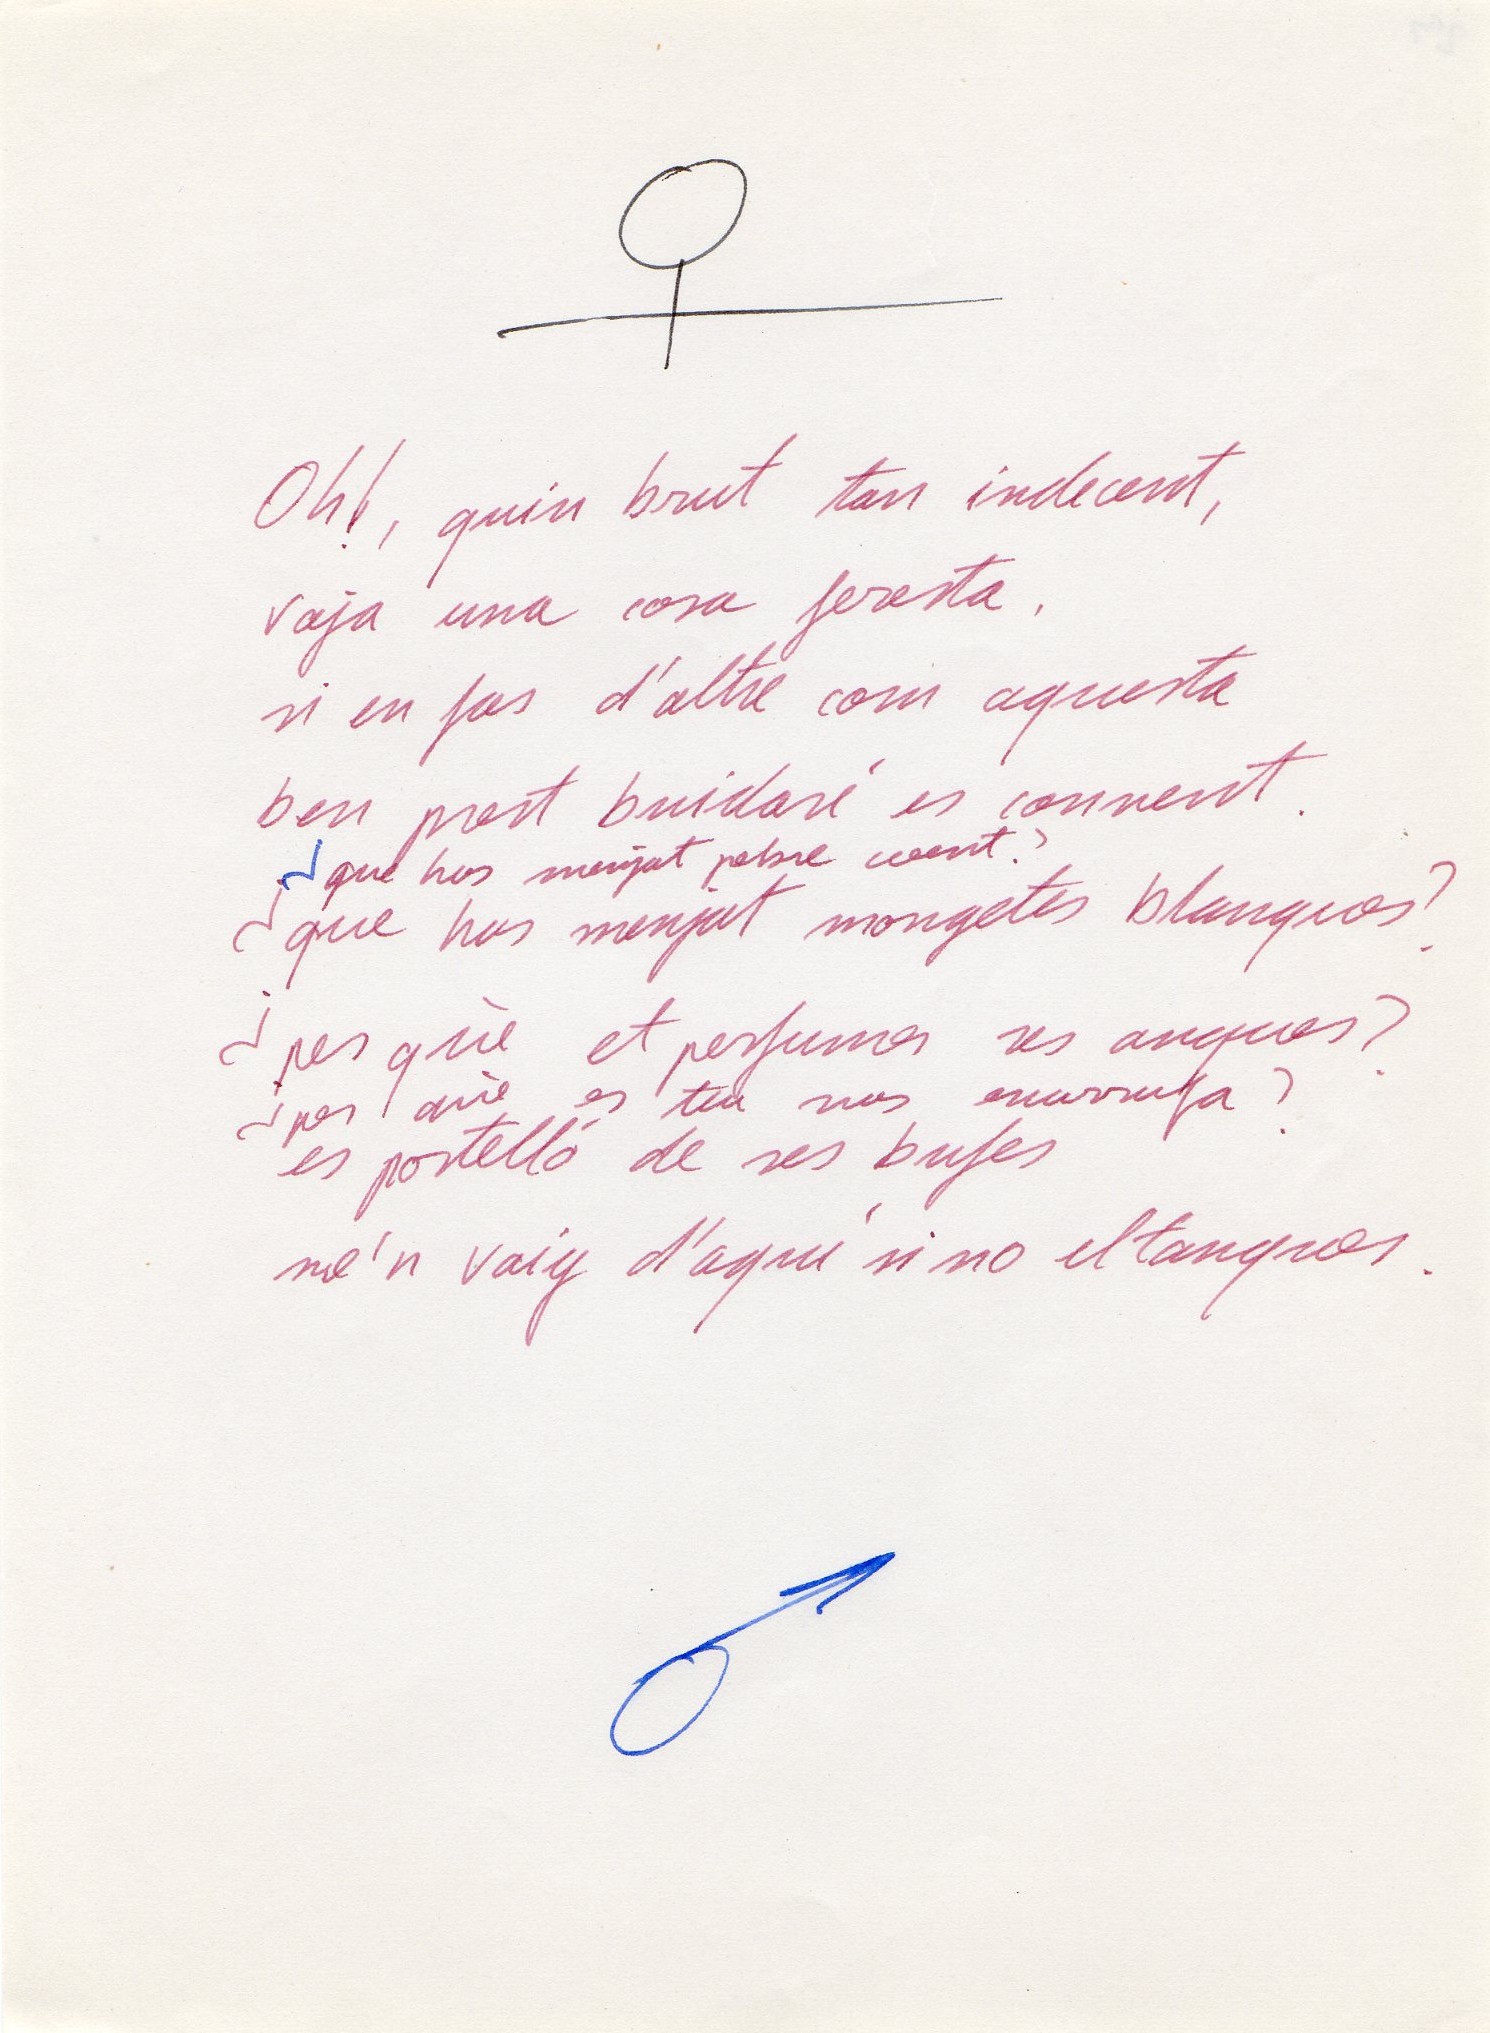 Oh!, quin brut tan indecent,
vaja una cosa feresta,
si en fas d'altre com aquesta
ben prest buidaré es convent.
¿que has menjat pebre coent?
¿que has menjat mongetes blanques?
¿per què et perfumes ses anques?
¿per què es teu nas enarrufa?
es portelló de ses bufes
me'n vaig d'aquí si no el tanques.